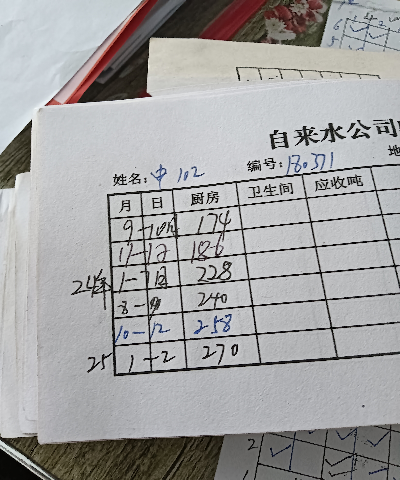 自来水公司
姓名：中 102 编号：180371
月 日 厨房 卫生间 应收吨
9-10月 174
11-12 186
24年 1-7月 228
8-9 240
10-12 258
25 1-2 270